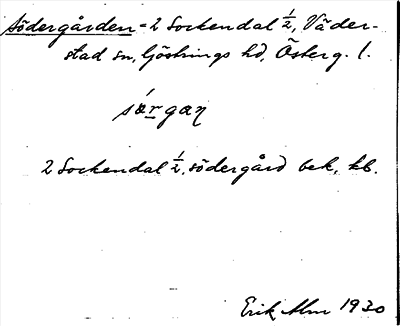 Södergården = 2 Sockendal ½, Väder-
stad sn, Göstrings hd, Österg. l.
sǿrgan
2 Sockendal ½, södergård bek, kb.
Erik Alm 1930